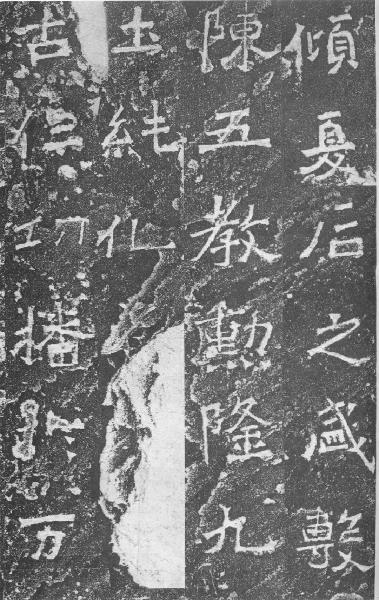 傾夏后之盛敷
陳五教勳隆九
土純化
古仁功播於万